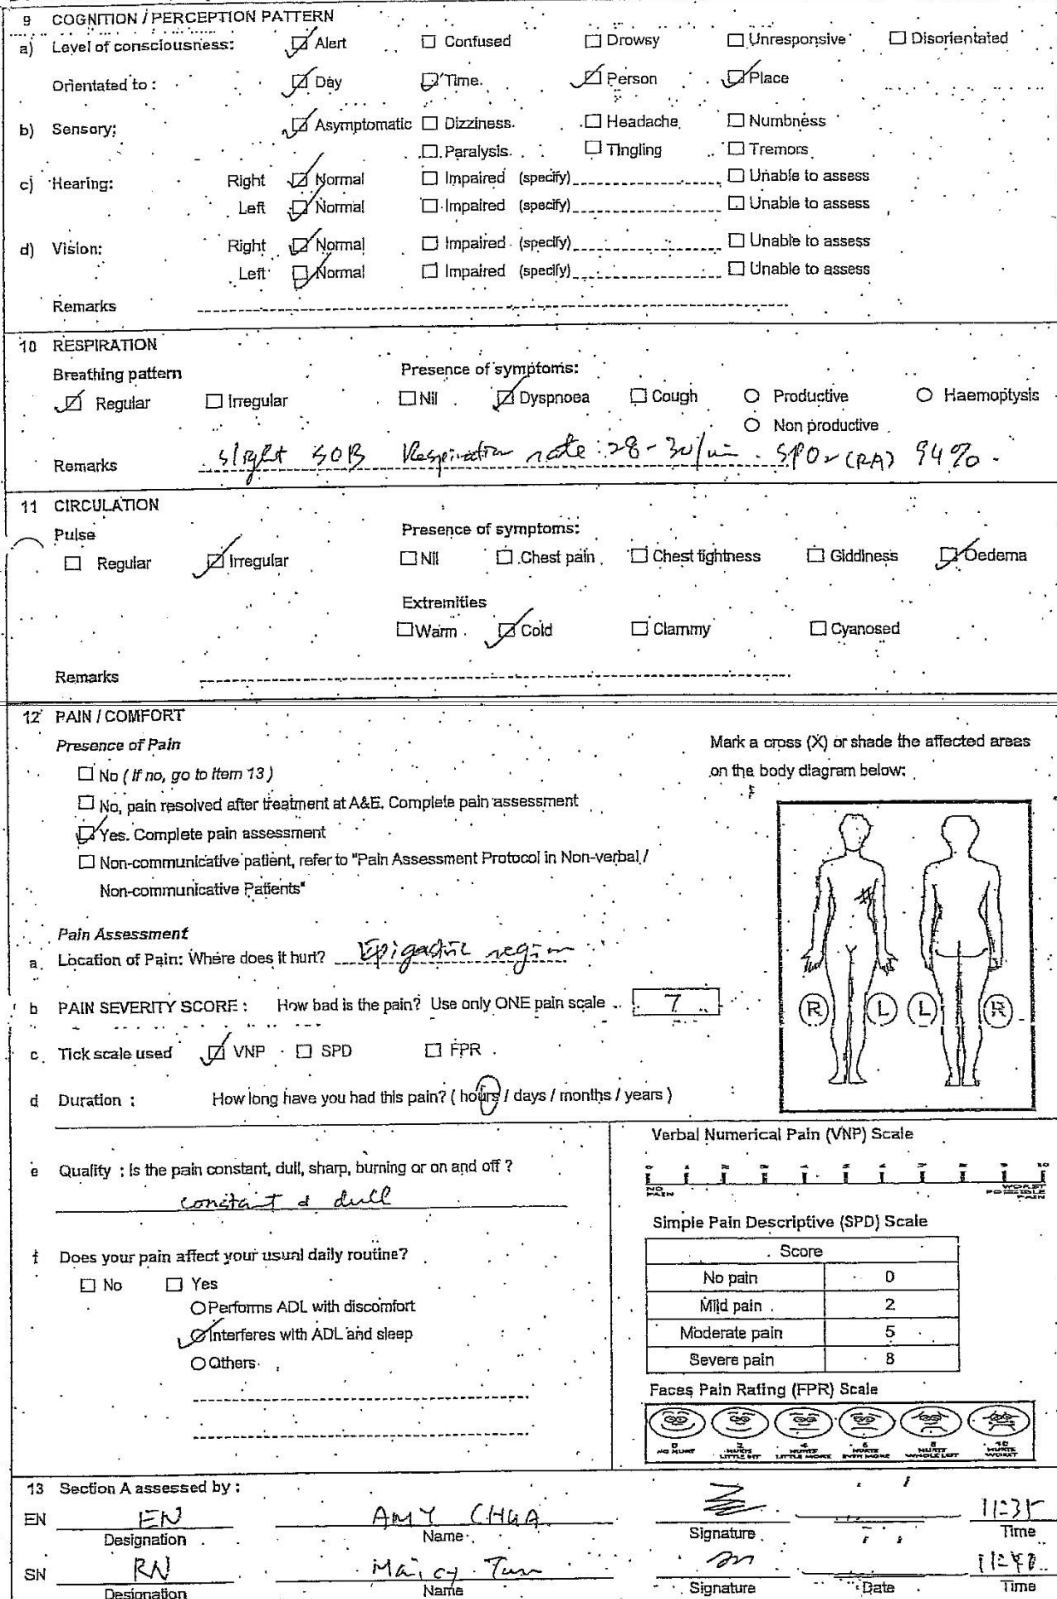 9 COGNITION / PERCEPTION PATTERN
a) Level of consciousness: Alert Confused Drowsy Unresponsive Disorientated
Orientated to : Day Time Person Place
b) Sensory: Asymptomatic Dizziness Headache Numbness
Paralysis Tingling Tremors
c) Hearing: Right Normal Impaired (specify) Unable to assess
Left Normal Impaired (specify) Unable to assess
d) Vision: Right Normal Impaired (specify) Unable to assess
Left Normal Impaired (specify) Unable to assess
Remarks
10 RESPIRATION
Breathing pattern Presence of symptoms:
Regular Irregular Nil Dyspnoea Cough Productive Haemoptysis
Non productive
Remarks slight SOB Respiration rate: 28-30/min. SPO2 (RA) 94%.
11 CIRCULATION
Pulse Presence of symptoms:
Regular Irregular Nil Chest pain Chest tightness Giddiness Oedema
Extremities
Warm Cold Clammy Cyanosed
Remarks
12 PAIN / COMFORT
Presence of Pain
No ( If no, go to Item 13 )
No, pain resolved after treatment at A&E. Complete pain assessment
Yes. Complete pain assessment
Non-communicative patient, refer to "Pain Assessment Protocol in Non-verbal /
Non-communicative Patients"
Mark a cross (X) or shade the affected areas
on the body diagram below:
R L L R
Pain Assessment
a. Location of Pain: Where does it hurt? Epigastric region
b PAIN SEVERITY SCORE : How bad is the pain? Use only ONE pain scale .. 7
c. Tick scale used VNP SPD FPR
d Duration : How long have you had this pain? ( hours / days / months / years )
e Quality : Is the pain constant, dull, sharp, burning or on and off ?
constant & dull
f Does your pain affect your usual daily routine?
No Yes
Performs ADL with discomfort
Interferes with ADL and sleep
Others
Verbal Numerical Pain (VNP) Scale
0 1 2 3 4 5 6 7 8 9 10
NO PAIN WORST POSSIBLE PAIN
Simple Pain Descriptive (SPD) Scale
Score
No pain 0
Mild pain 2
Moderate pain 5
Severe pain 8
Faces Pain Rating (FPR) Scale
0 2 4 6 8 10
NO HURT HURTS LITTLE BIT HURTS LITTLE MORE HURTS EVEN MORE HURTS WHOLE LOT HURTS WORST
13 Section A assessed by :
EN EN AMY CHUA 11:35
Designation Name Signature Time
SN RN Tan 11:40
Designation Name Signature Date Time